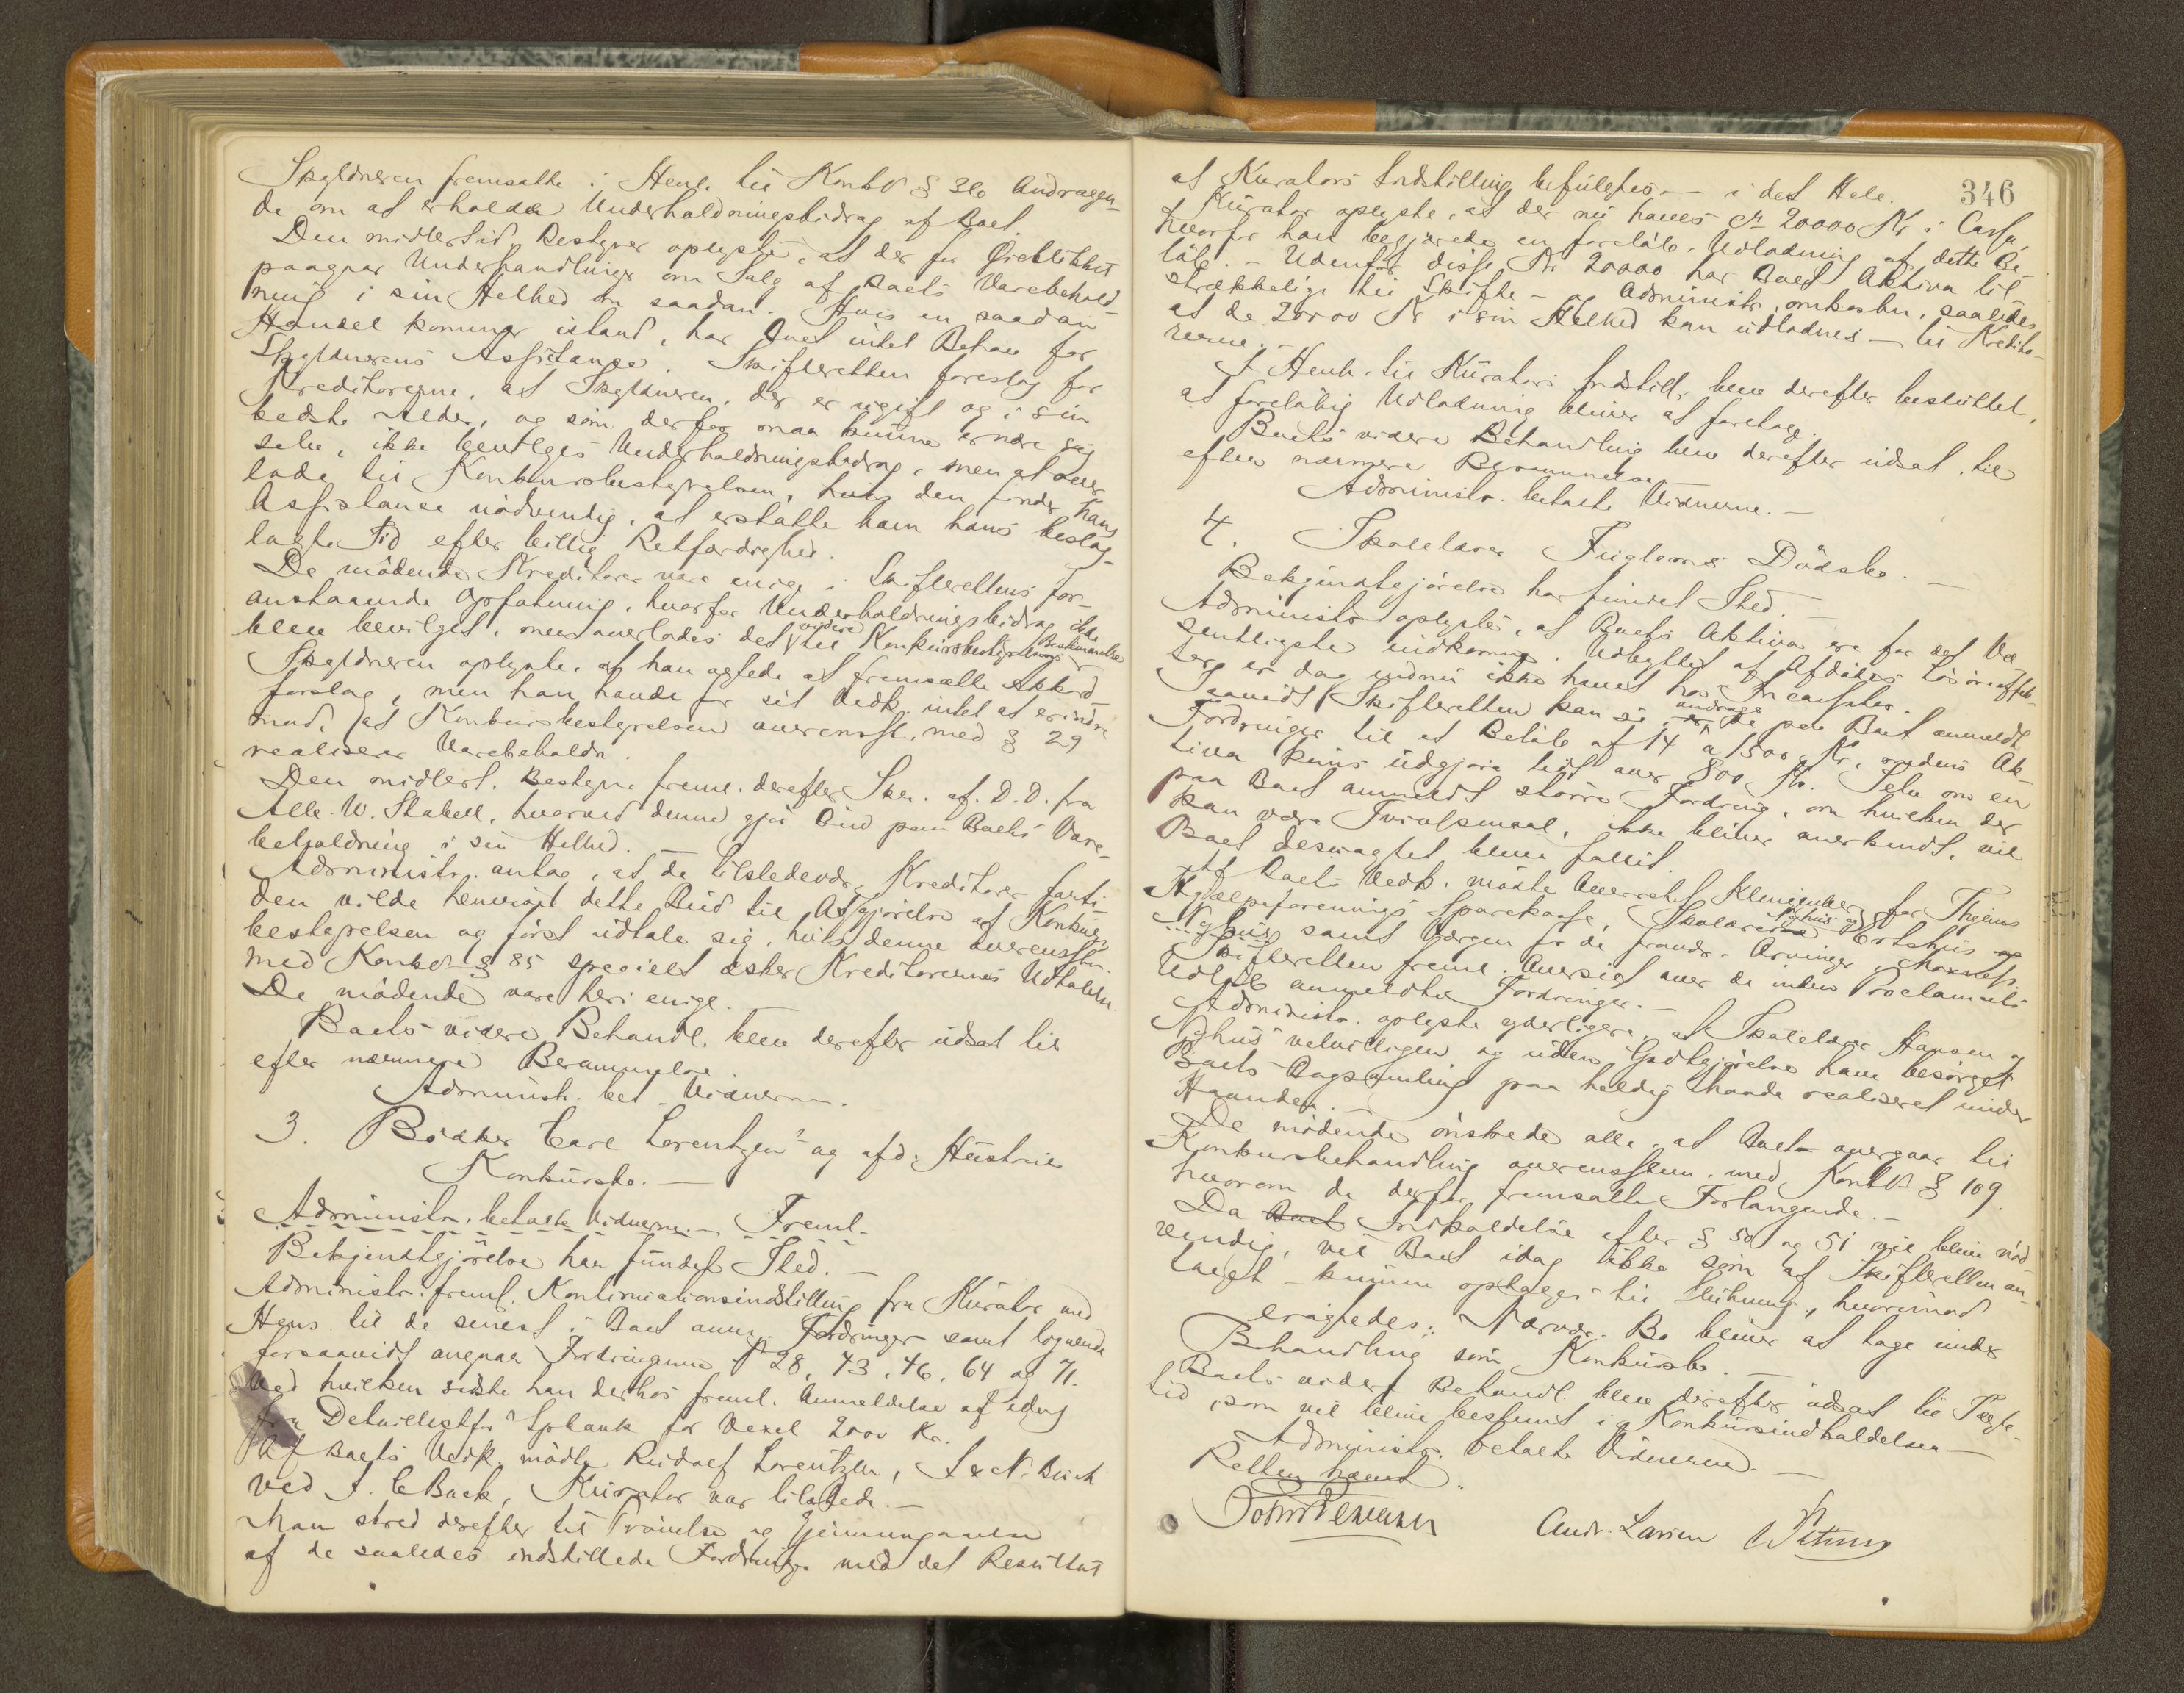 Skyldneren fremsatte i Henh. til Konk.L § 36 Andragen-
de om at erholde Underholdningsbidrag af Boet.
Den midlertid. Bestyrer oplyste, at der for Øieblikket
paagaar Underhandlinger om Salg af Boets Varebehold-
ning i sin Helhed som saadan. Hvis en saadan
Handel kommer istand, har Boet intet Behov for
Skyldnerens Assistance. Skifteretten foreslog for
Kreditorerne, at Skyldneren, der er ugift og i sin
bedste Alder, og som derfor maa kunne ernære sig
selv, ikke bevilges Underholdningsbidrag, men at over
lade til Konkursbestyrelsen, hvis den finder hans
Assistance nödvendig, at erstatte ham hans beslag-
lagte Tid efter billig Retfærdighed.
De mödende Kreditorer vare enige i Skifterettens for-
anstaaende Opfatning, hvorfor Underholdningsbidrag ikke
blev bevilget, men overlodes det videre til Konkursbestyrelsens Bestemmelse
Skyldneren oplyste, at han agtede at fremsætte Akkord
forslag, men han havde for sit Vedk. intet at erindre
mod, at Konkursbestyrelsen overensst. med § 29
realiserer Varebeholdn.
Den midlert. Bestyrer freml. derefter Skr. af D.D. fra
Alb. W. Stabell, hvorved denne gjör Bud paa Boets Vare-
beholdning i sin Helhed.
Administr. antog, at de tilstedevær. Kreditorer
den vilde henvist dette Bud til Afgjörelse af Konkurs-
bestyrelsen og först udtale sig, hvis denne overensstem.
med Konk.L § 85 specielt æsker Kreditorernes Udtalelse
De mödende vare heri enige.
Boets videre Behandl. blev derefter udsat til
efter nærmere Berammelse
Administr. bet. Vidnerne.
3. Bödker Carl Lorentzen og afd. Hustrues
Konkursbo.
Administr. betalte Vidnerne. – Freml.
Bekjendtgjörelse har fundet Sted. –
Administr. freml. Kontinuationsindstilling fra Kurator med
Hens. til de senest i Boet anm. Fordringer samt lignende
forsaavidt angaar Fordringerne № 28, 43, 46, 64 og 71.
Ved hvilken sidste han derhos freml. Anmeldelse af idag
fra Detaillistfor. Spbank for Vexel 2000 Kr.
Af Boets Vedk. mödte Rudolf Lorentzen, I & N. Buck
ved J. C Buck, Kurator var tilstede. –
Man skred derefter til Prövelse og Gjennemgaaelse
af de saaledes indstillede Fordringer med det Resultat
346
at Kurators Indstilling befulgtes – i det Hele.
Kurator oplyste, at der nu haves ca 20000 Kr i Cassa,
hvorfor han begjærede en foreløb. Udlodning af dette Be-
löb. – Udenfor disse Kr 20000 har Boet Aktiva til-
strækkelige til Skifte- Administr. omkostn., saaledes
at de 20000 Kr i sin Helhed kan udlodnes – til Kredito-
rerne. –
I Henh. til Kurators Indstill. blev derefter besluttet,
at foreløbig Udlodning bliver at foretage.
Boets videre Behandling blev derefter udsat til
efter nærmere Berammelse
Administr. betalte Vidnerne. –
4. Skolelærer Fuglems Dödsbo. –
Bekjendtgjörelse har fundet Sted. –
Administr oplyste, at Boets Aktiva er for det Væ-
sentligste indkommet. Udbyttet af Afdödes Lösöreeffek-
ter er dog endnu ikke hævet hos Incassator.
Saavidt Skifteretten kan se, andrage de paa Boet anmeldte
Fordringer til et Belöb af 14 à 1500 Kr. medens Ak-
tiva kun udgjöre lidt over 800 Kr. Selv om en
paa Boet anmeldt större Fordring, om hvilken der
kan være Tvivlsmaal, ikke bliver anerkendt, vil
Boet desuagtet blive fallit.
Af Boets Vedk. mödte Overretssf Klingenberg for Thjems
Hjælpeforenings Sparekasse, Skolelærer Nyhus og Ertshus og
Nyhus samt Værgen for de fravær. Arvinger Moxness.
Skifteretten freml. Oversigt over de inden Proclamaets
Udlöb anmeldte Fordringer. –
Administr. oplyste yderligere, at Skolelærer Hansen og
Nyhus velvilligen og uden Godtgjörelse have besörget
Boets Bogsamling paa heldig Maade realiseret under
Haanden.
De mödende önskede alle, at Boet overgaar til
Konkursbehandling overensstem. med Konk.L § 109.
hvorom de derfor fremsatte Forlangende. –
Da Boet Indkaldelse efter § 50 og 51 vil blive nöd-
vendig, vil Boet idag ikke som af Skifteretten an-
taget – kunne optages til Slutning, hvorimod
eragtedes: Nærvær. Bo bliver at tage under
Behandling som Konkursbo. –
Boets videre Behandl. blev derefter udsat til Tægte-
tid, som vil blive bestemt i Konkursindkaldelsen –
Administr. betalte Vidnerne. –
Retten hævet.
Andr. Larsen